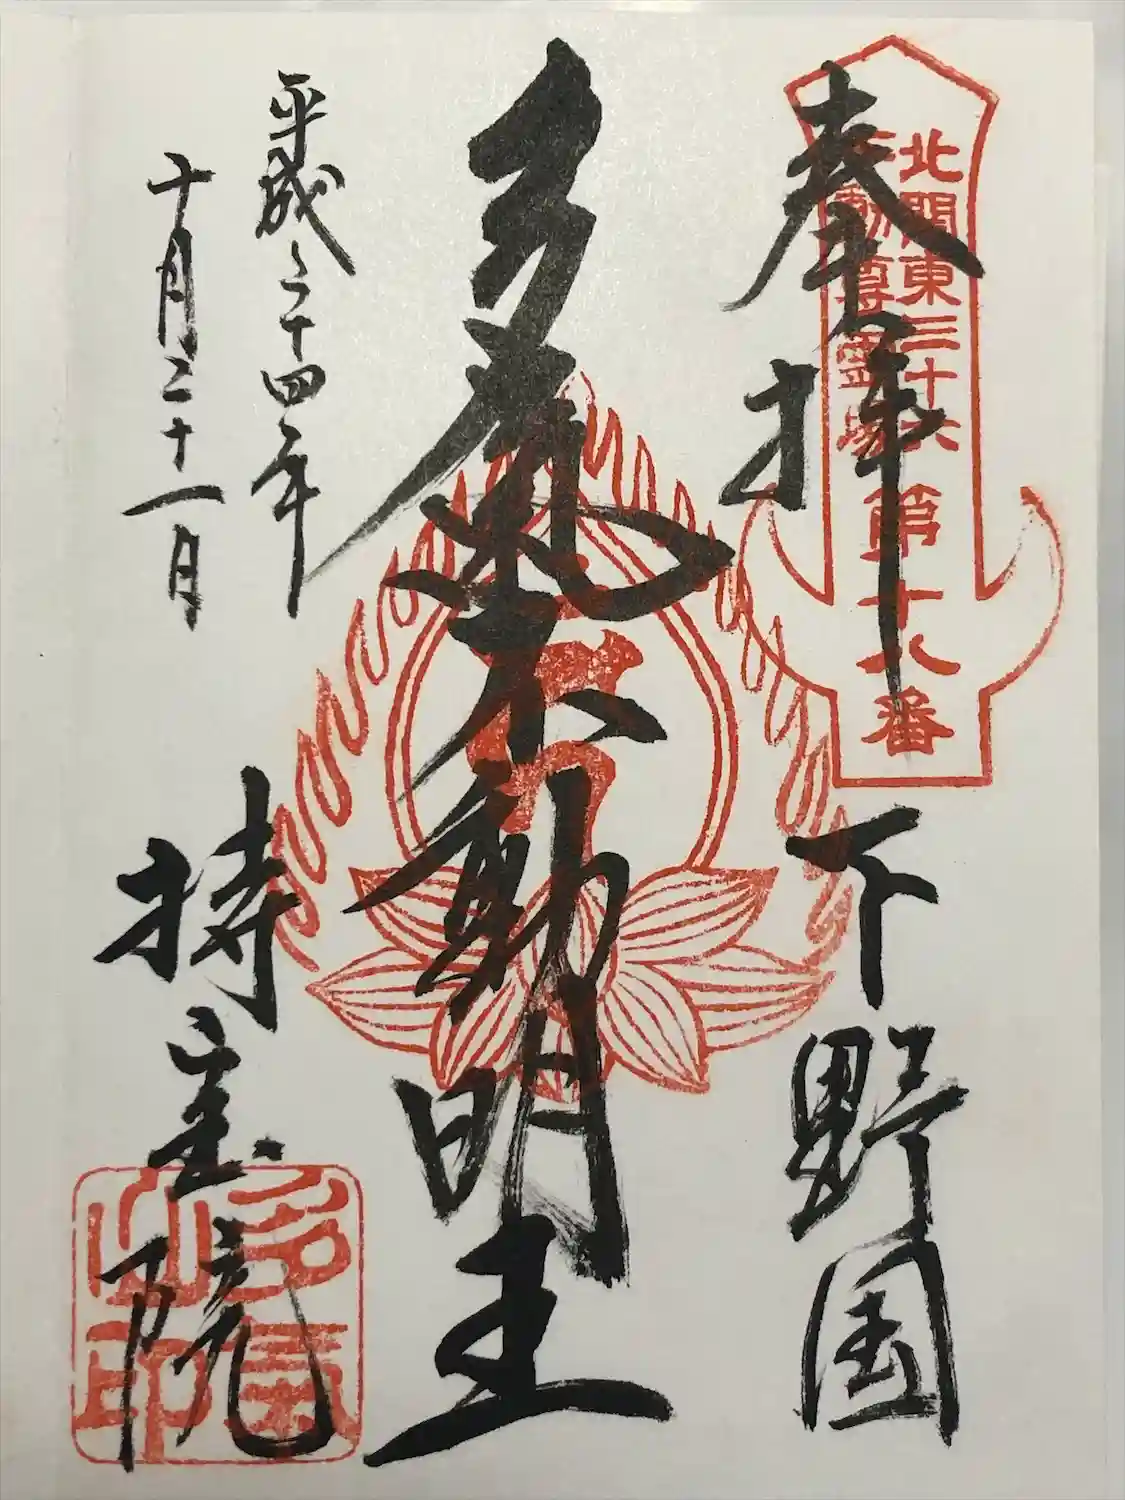 北関東三十六
不動尊霊場
第十八番
奉拝
下野国
多氣不動明王
平成二十四年
十月二十一日
持宝院
多氣山印